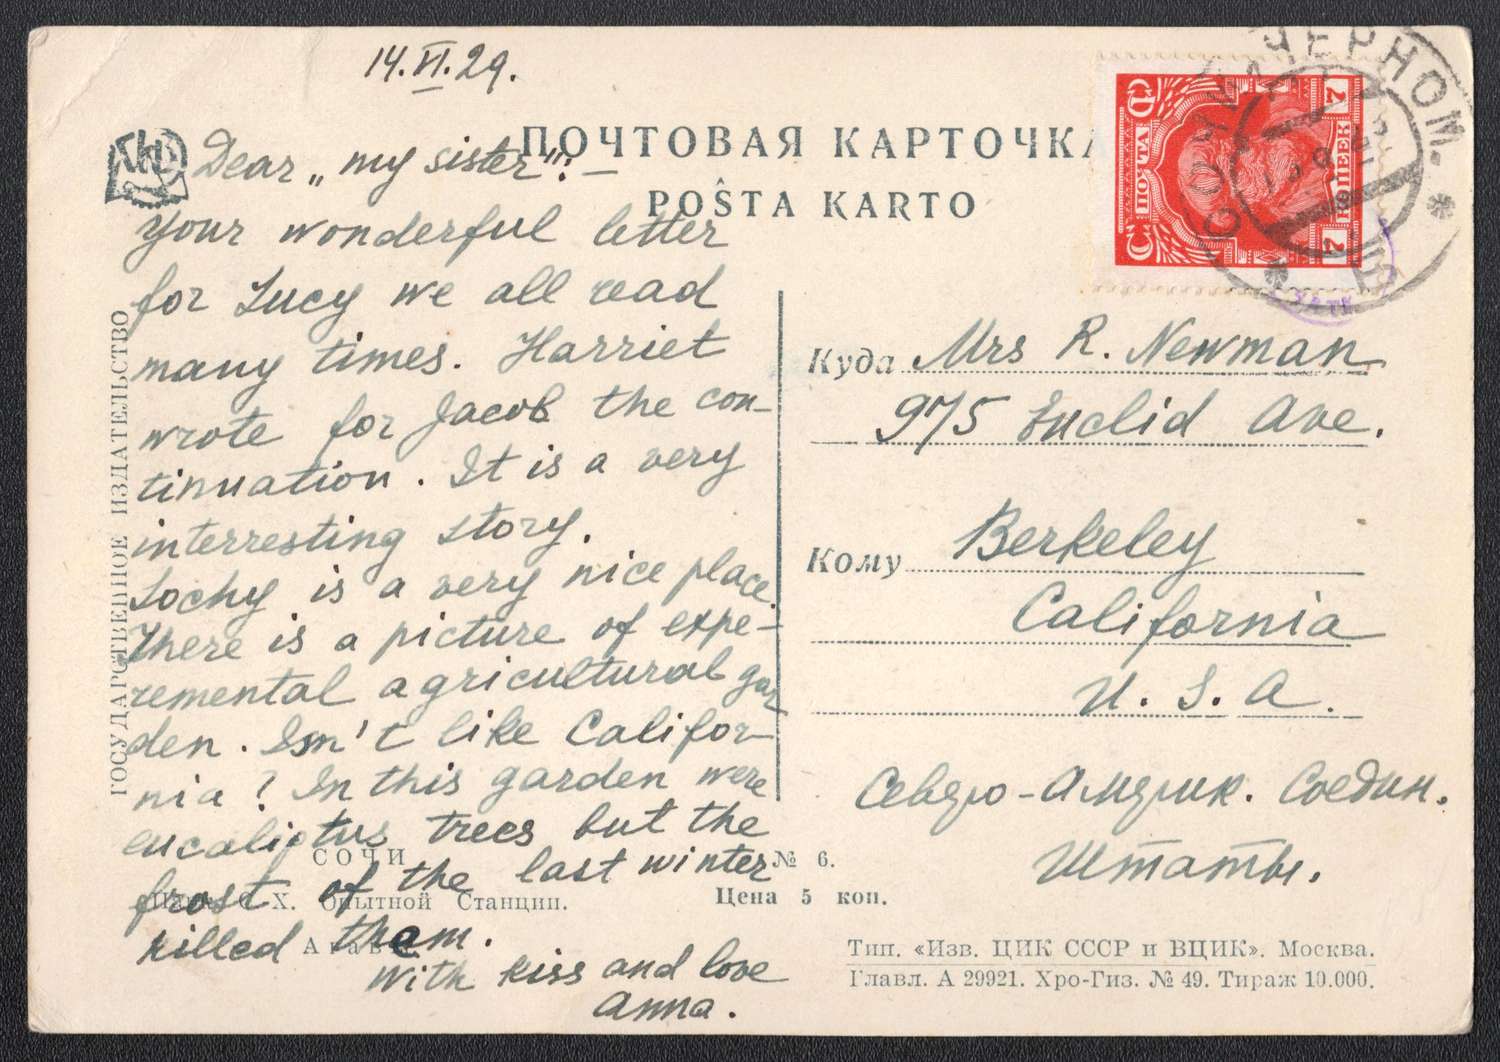 14.VI.29.
ПОЧТОВАЯ КАРТОЧКА
POŜTA KARTO
Dear „my sister"! –
Your wonderful letter
for Lucy we all read
many times. Harriet
wrote for Jacob the con-
tinuation. It is a very
interresting story.
Sochy is a very nice place.
There is a picture of expe-
remental agricultural gar
den. Isn't like Califor-
nia? In this garden were
eucaliptus trees but the
frost of the last winter
killed them.
With kiss and love
Anna.
ГОСУДАРСТВЕННОЕ ИЗДАТЕЛЬСТВО
СОЧИ
№ 6.
С. Х. Опытной Станции.
Цена 5 коп.
ПОЧТА
С.С.
7 КОПЕЕК 7
СОЧИ ЧЕРНОМ.
Куда Mrs R. Newman
975 Euclid Ave.
Кому Berkeley
California
U. S. A.
Северо-Америк. Соедин.
Штаты.
Тип. «Изв. ЦИК СССР и ВЦИК». Москва.
Главл. А 29921. Хро-Гиз. № 49. Тираж 10.000.